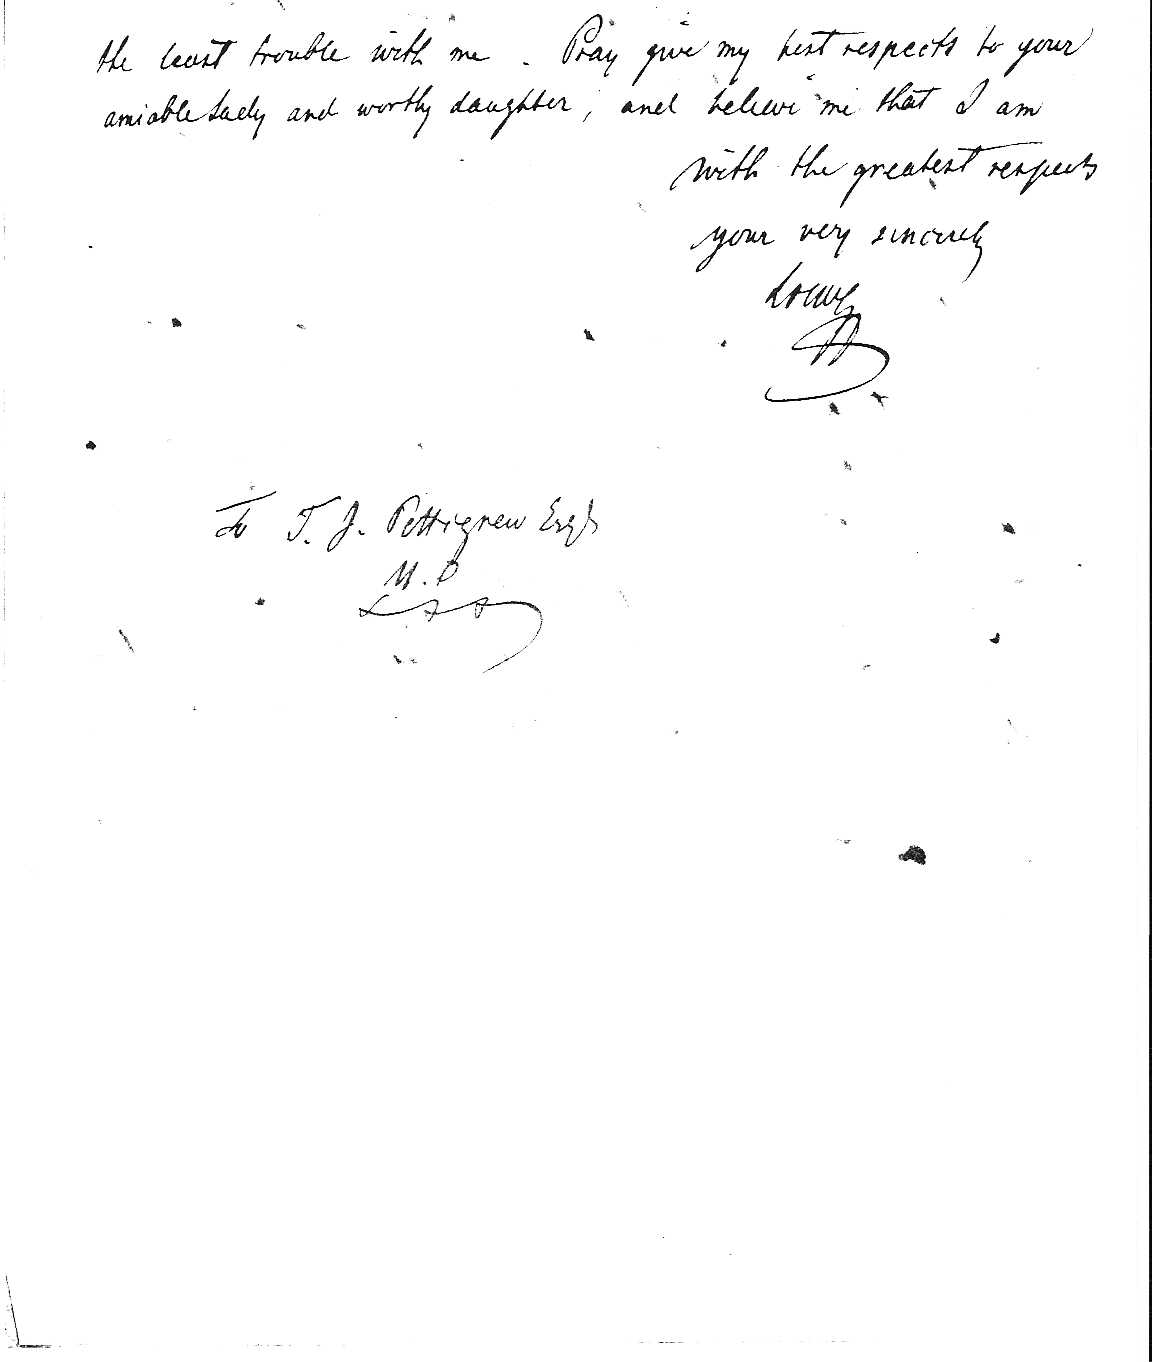 the least trouble with me. Pray give my best respects to your
amiable Lady and worthy daughter, and believe me that I am
with the greatest respects
your very sincerely
Loewe
To T. J. Pettigrew Esqr
M.D